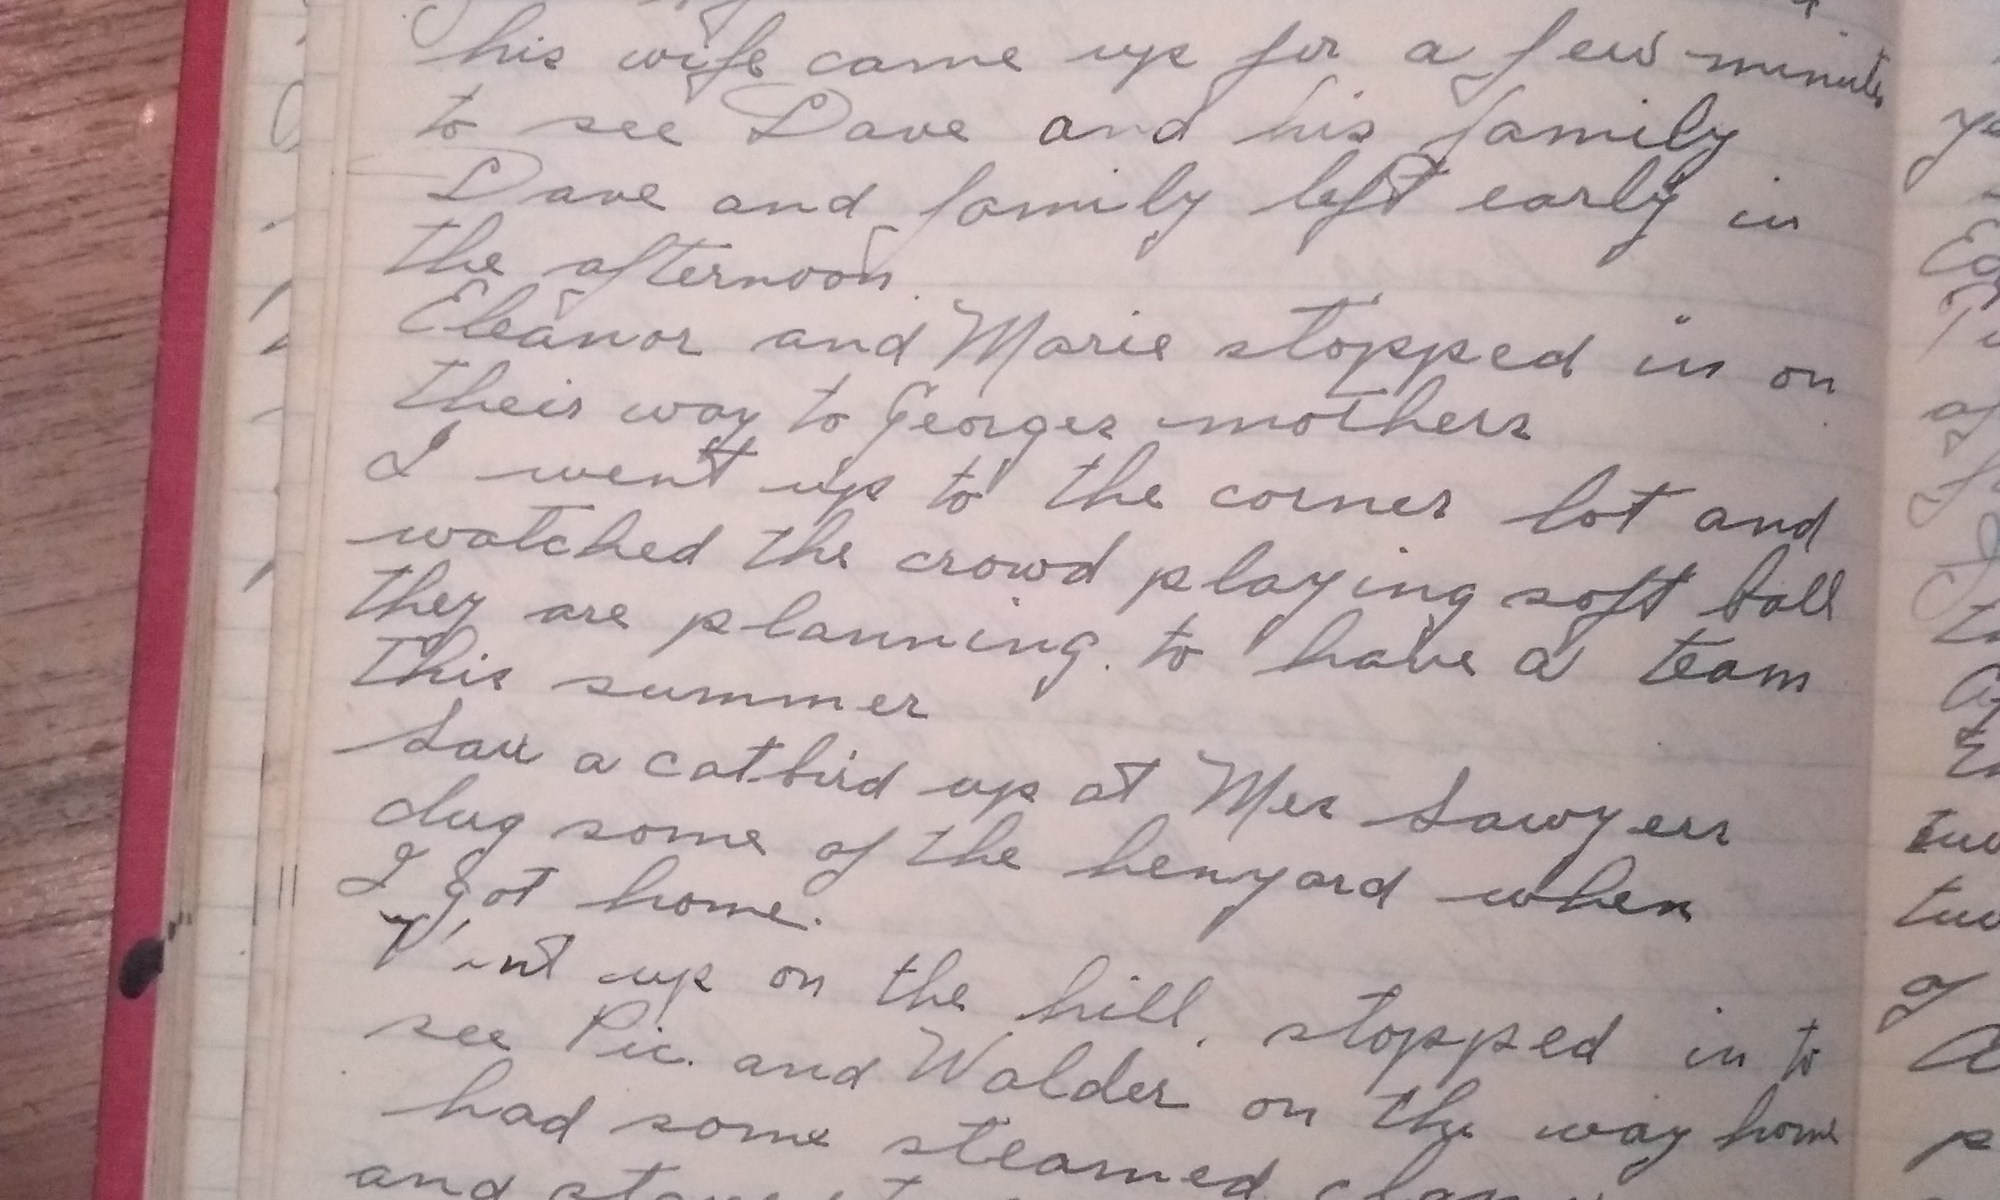 his wife came up for a few minutes
to see Dave and his family
Dave and family left early in
the afternoon.
Eleanor and Marie stopped in on
their way to Georges mothers
I went up to the corner lot and
watched the crowd playing soft ball
they are planning. to have a team
this summer
Saw a catbird up at Mrs Sawyers
dug some of the henyard when
I got home.
up on the hill. stopped in to
see Pic. and Walder on the way home
had some steamed
and